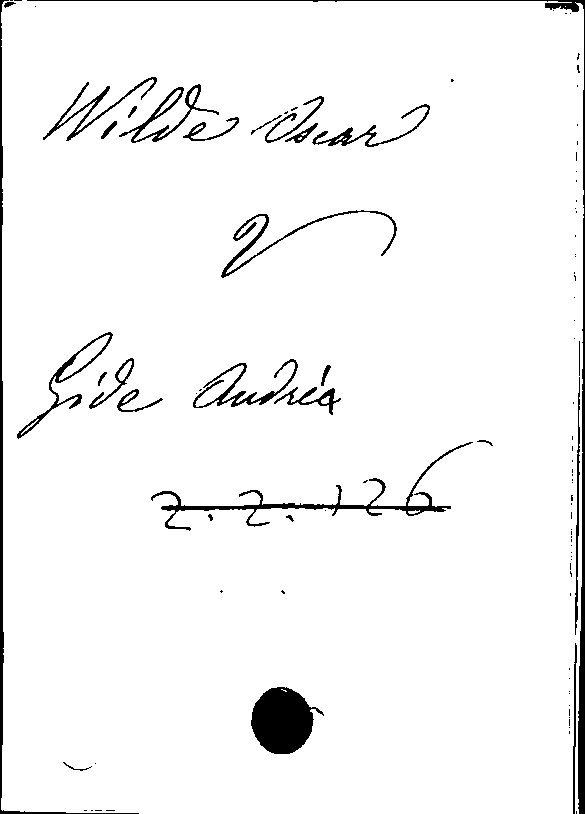 Wilde Oscar
v
Gide Andréa
2.2.126